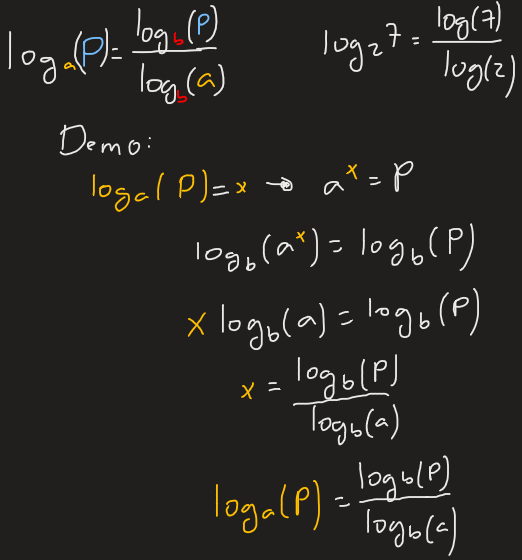 logₐ(P) = log_b(P) / log_b(a)    log₂ 7 = log(7) / log(2)
Demo:
logₐ(P) = x → aˣ = P
log_b(aˣ) = log_b(P)
x log_b(a) = log_b(P)
x = log_b(P) / log_b(a)
logₐ(P) = log_b(P) / log_b(a)